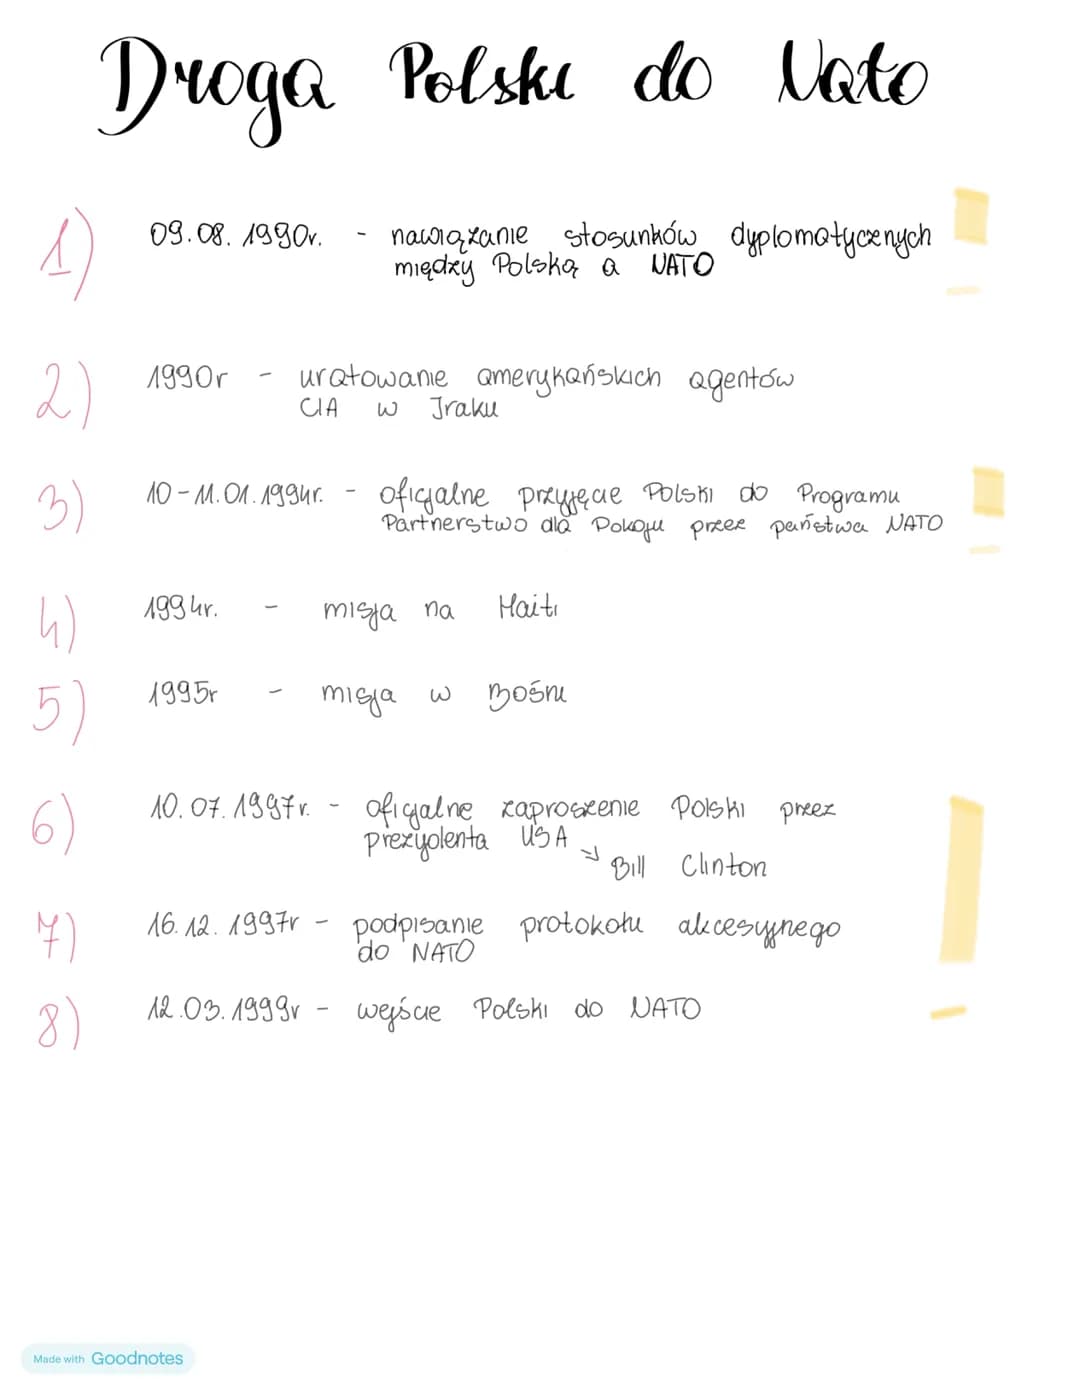 Droga Polski do Nato
1) 09.08.1990r. - nawiązanie stosunków dyplomatycznych
między Polską a NATO
2) 1990r - uratowanie amerykańskich agentów
CIA w Iraku
3) 10-11.01.1994r. - oficjalne przyjęcie Polski do Programu
Partnerstwo dla Pokoju przez państwa NATO
4) 1994r. - misja na Haiti
5) 1995r - misja w Bośni
6) 10.07.1997r. - oficjalne zaproszenie Polski przez
prezydenta USA
→ Bill Clinton
7) 16.12.1997r - podpisanie protokołu akcesyjnego
do NATO
8) 12.03.1999r - wejście Polski do NATO
Made with Goodnotes